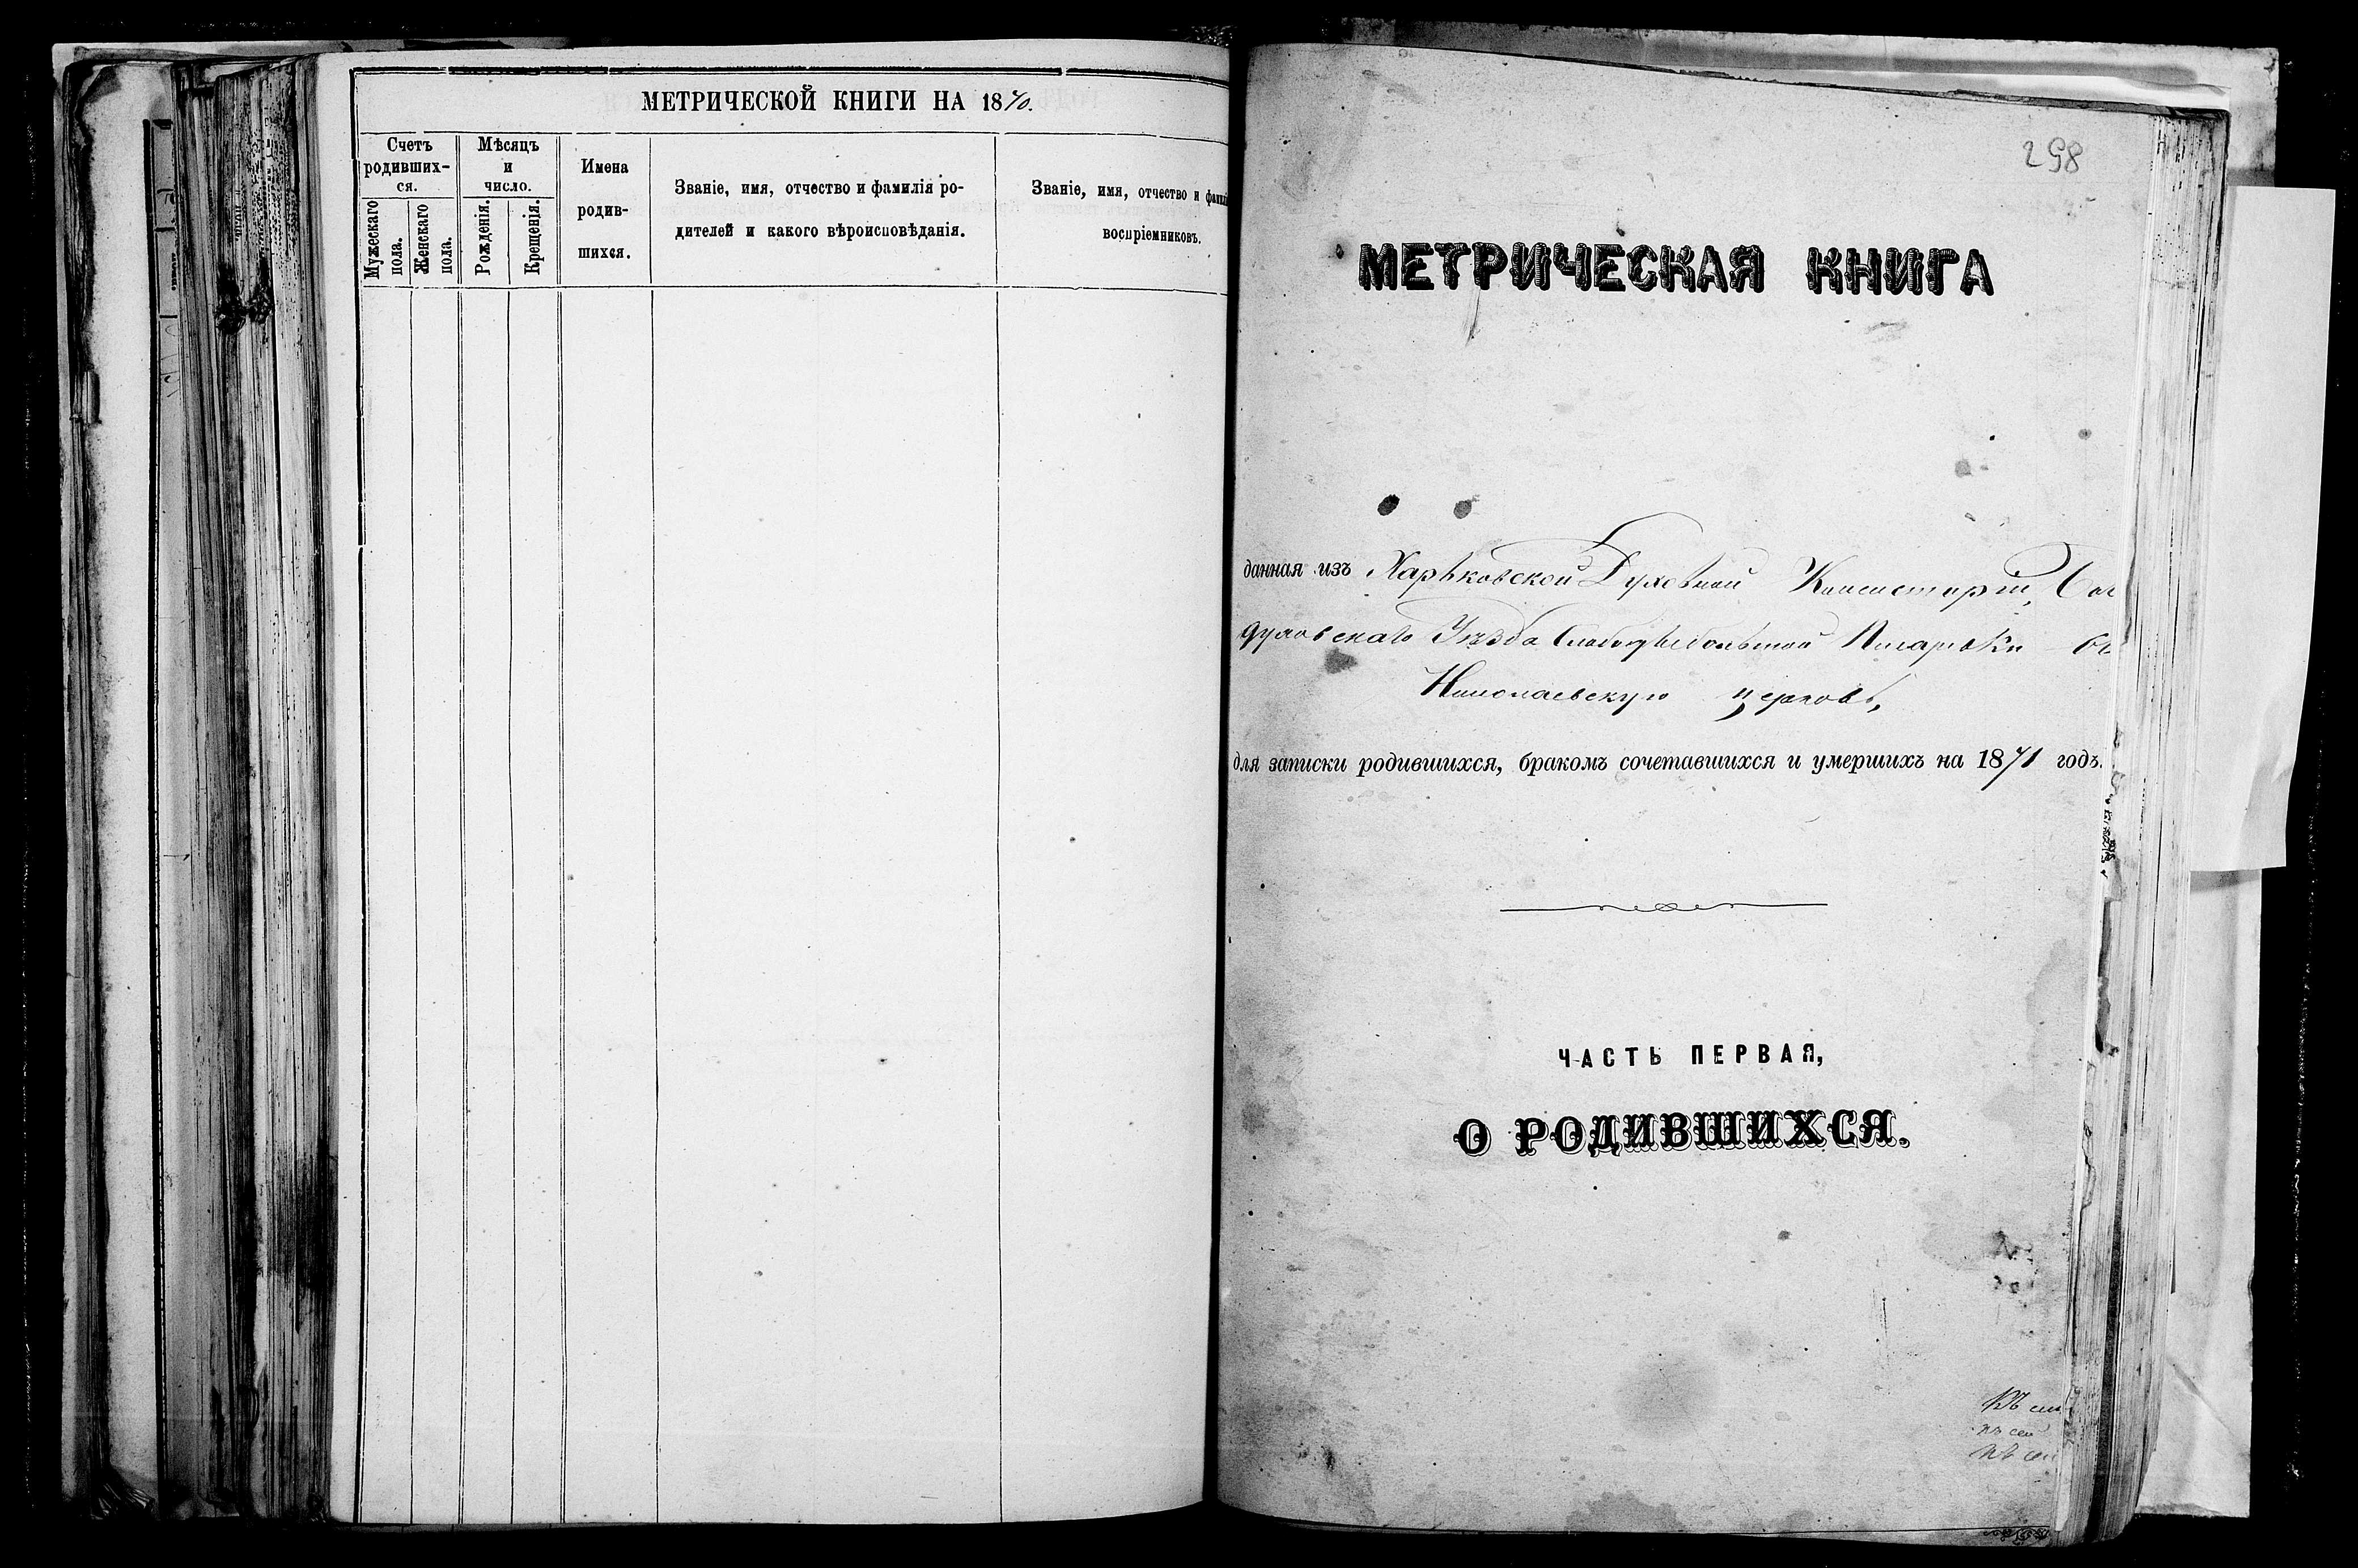 МЕТРИЧЕСКОЙ КНИГИ НА 1870.
Счетъ
родивших-
ся.
Мужескаго
пола.
Женскаго
пола.
Мѣсяцъ
и
число.
Рожденія.
Крещенія.
Имена
родив-
шихся.
Званіе, имя, отчество и фамилія ро-
дителей и какого вѣроисповѣданія.
Званіе, имя, отчество и фамилі
воспріемниковъ.
298
МЕТРИЧЕСКАЯ КНИГА
данная изъ Харьковской Духовной Консисторіи, Бог
духовскаго Уѣзда Слободы Большой Писаревки въ
Николаевскую церковь,
для записки родившихся, бракомъ сочетавшихся и умершихъ на 1871 годъ.
ЧАСТЬ ПЕРВАЯ,
О РОДИВШИХСЯ.